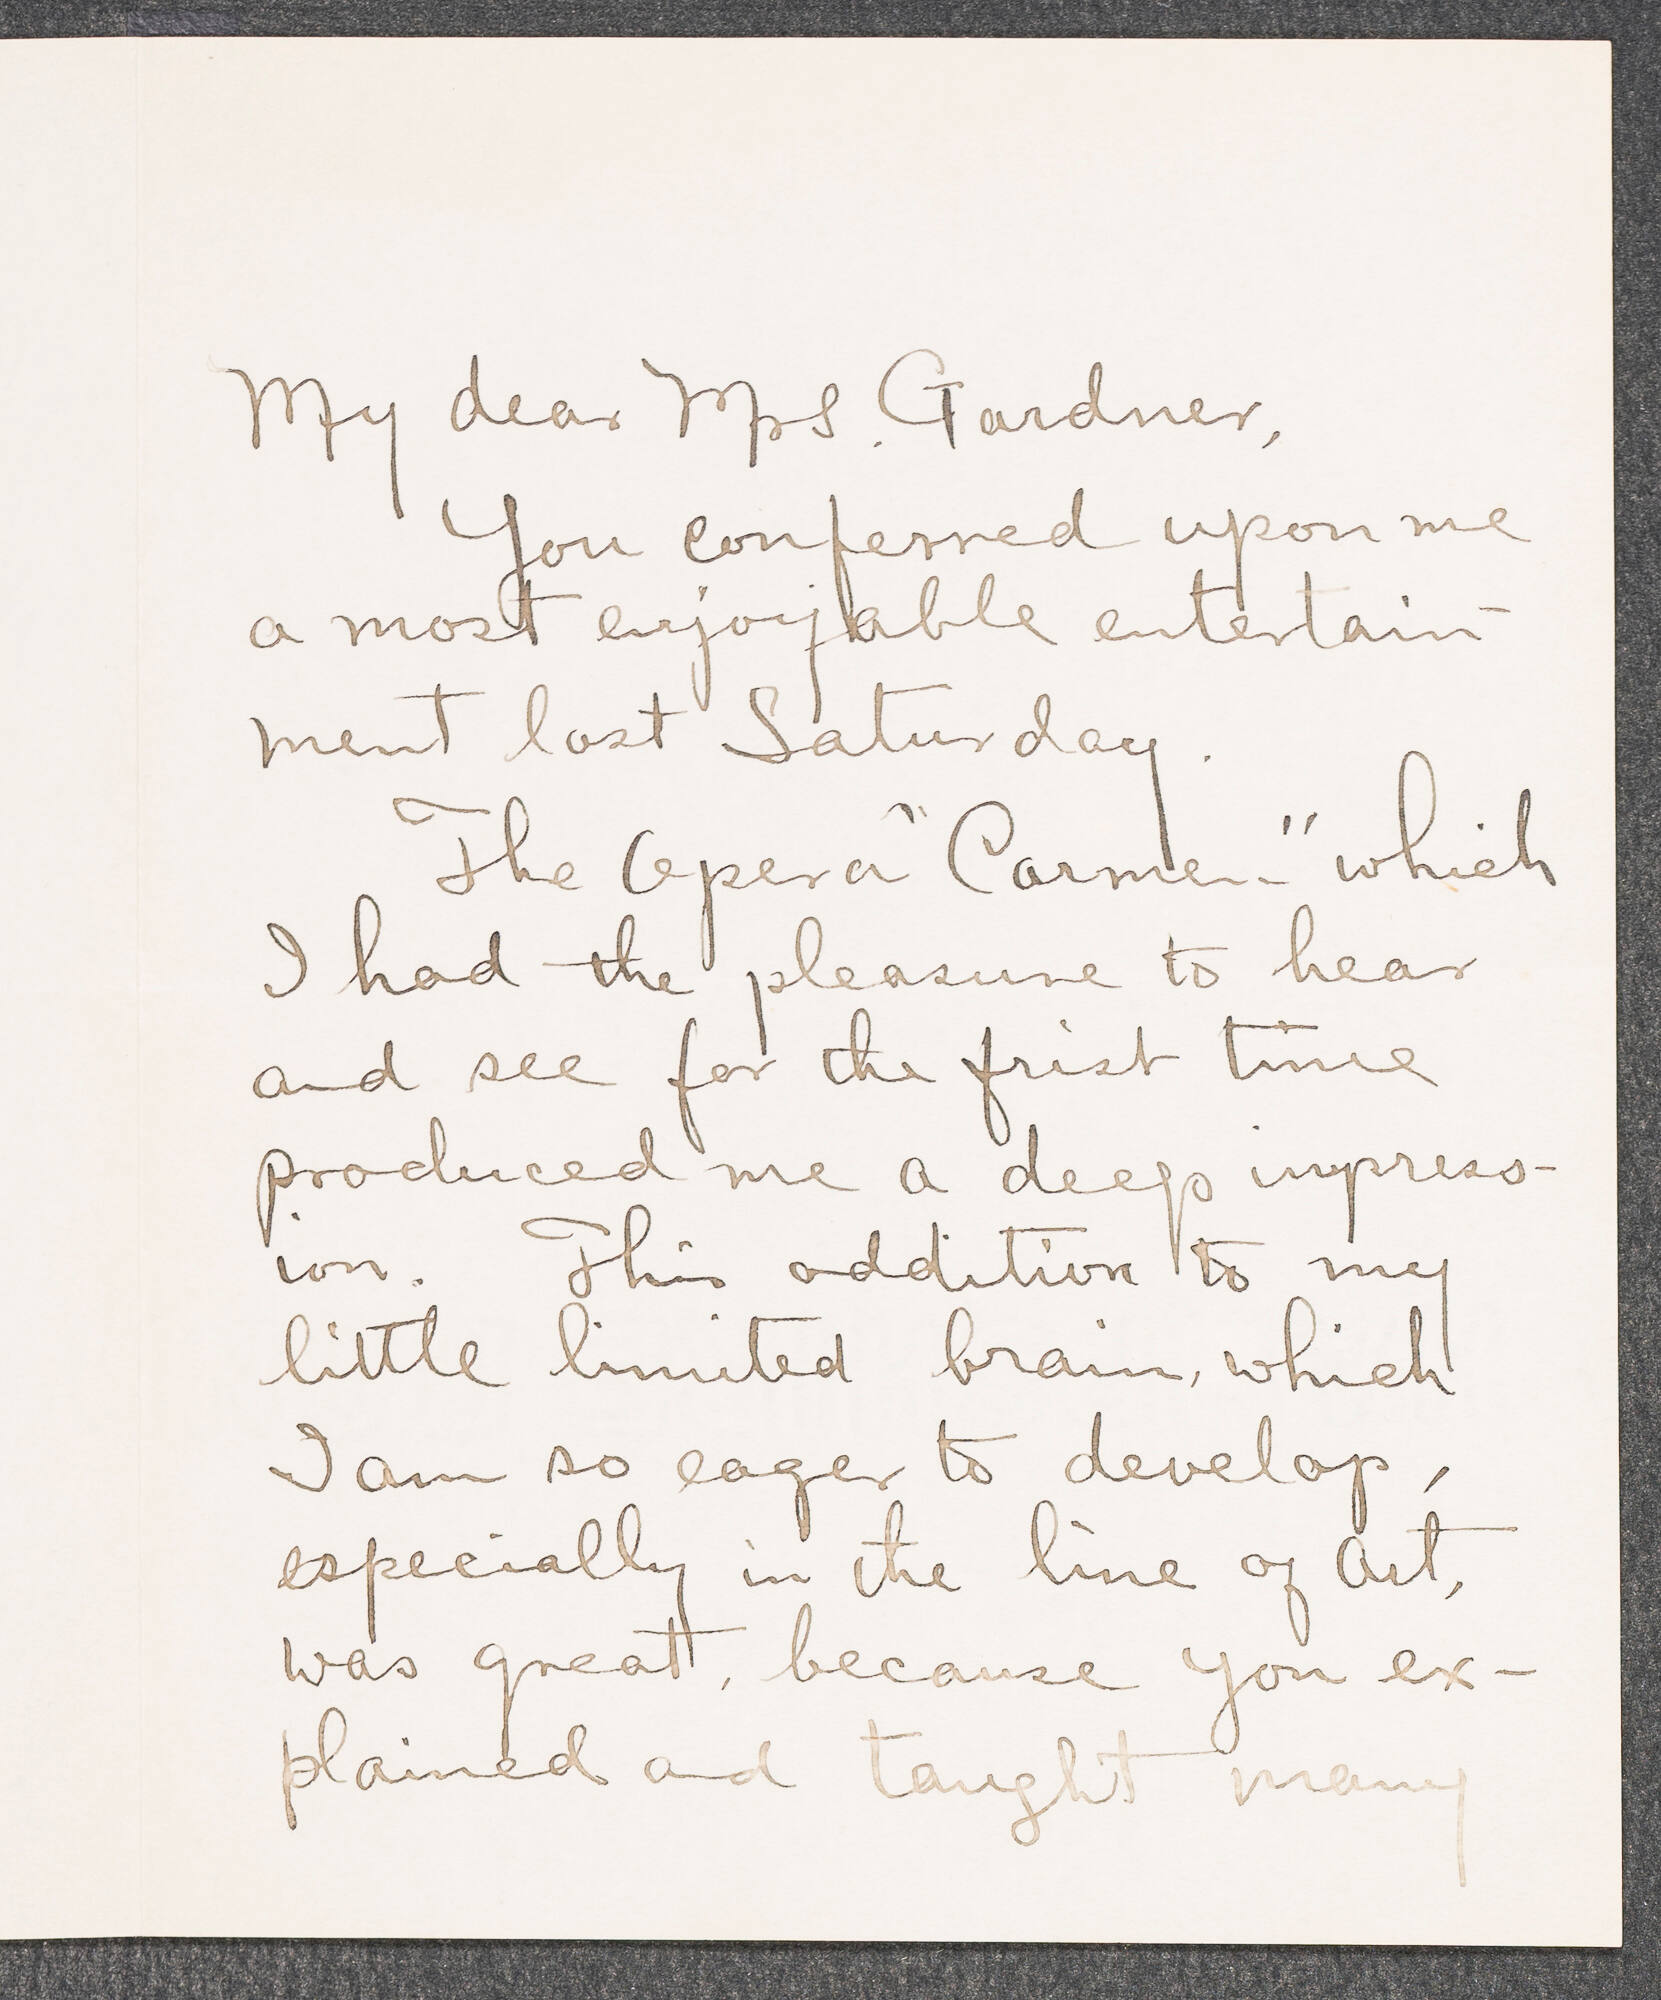 My dear Mrs. Gardner,
You conferred upon me
a most enjoyable entertain-
ment last Saturday.
The Opera "Carmen" which
I had the pleasure to hear
and see for the frist time
produced me a deep impress-
ion. This addition to my
little limited brain, which
I am so eager to develop,
especially in the line of Art,
was great, because you ex-
plained and taught many